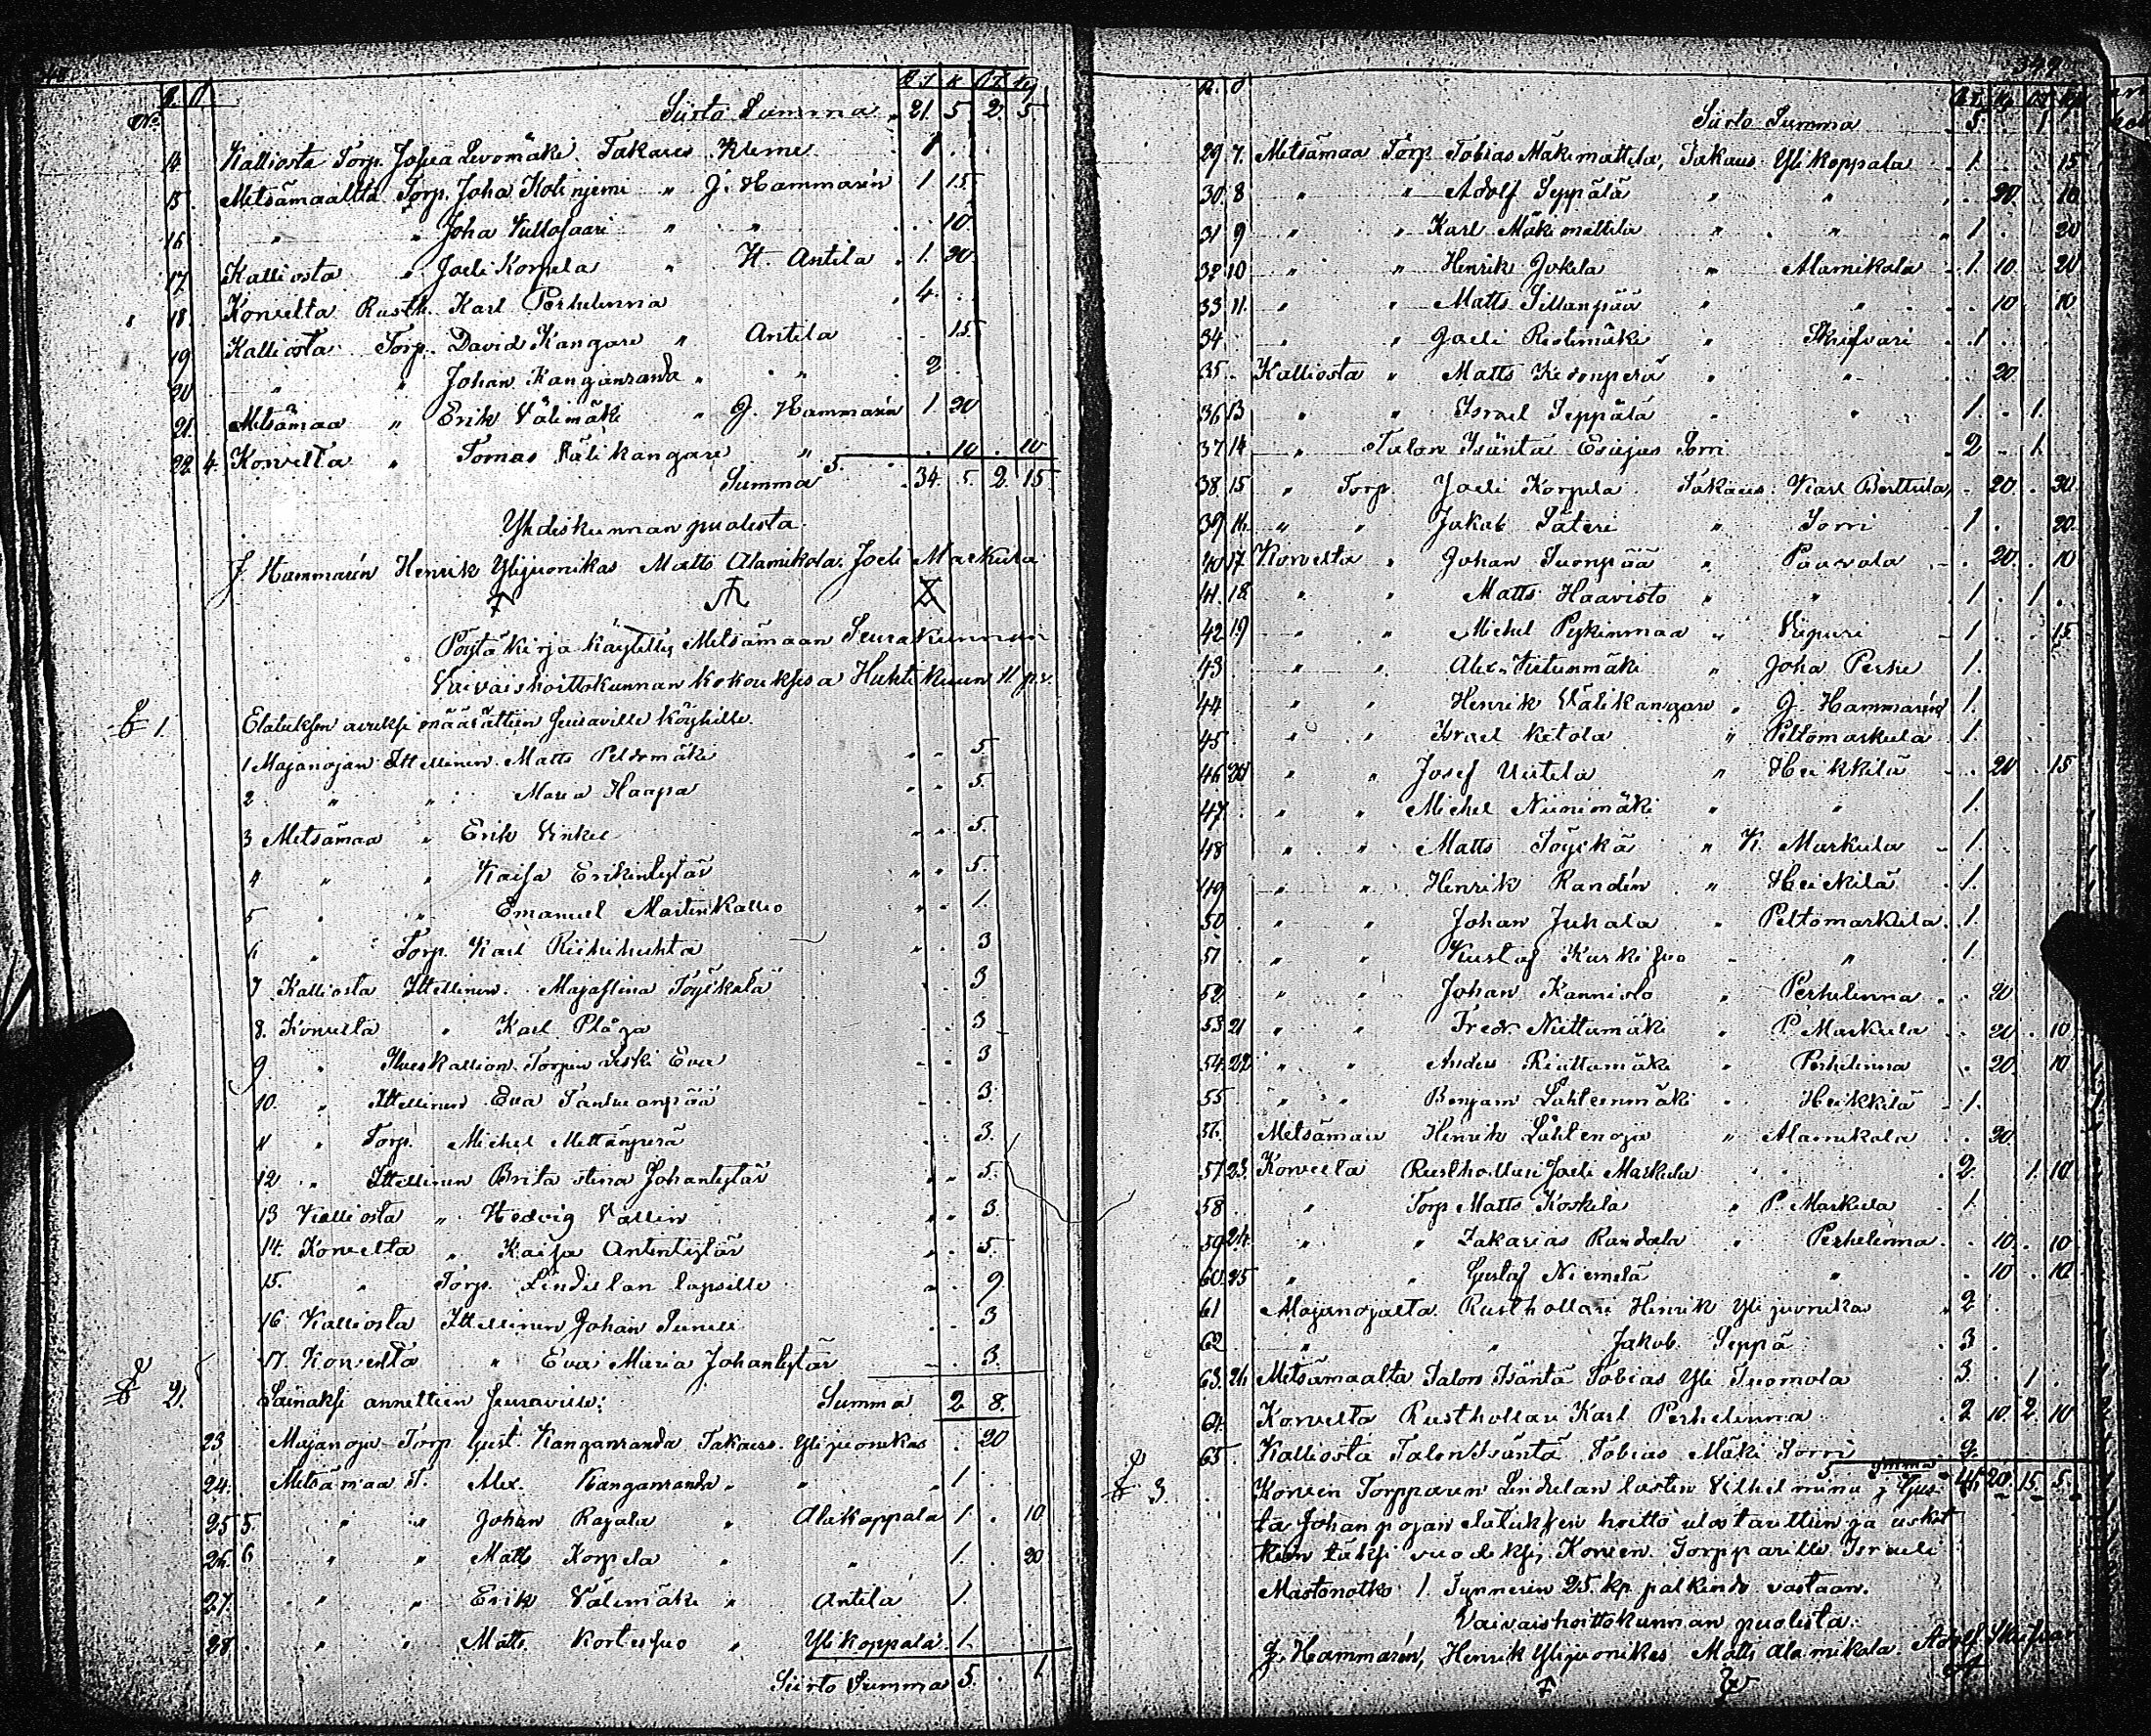 R. T. K. R. T. Kp.
No. R. O.
Siirto Summa 21. 5. 2. 5.
14 Kalliosta Torp. Josua Levomäki Takaus Kleme 1
15 Metsämaalta Torp. Joha Kotiniemi " J. Hammarén 1 15.
16 " " Joha Kullasaari " " 10.
17 Kalliosta " Joeli Korpela " H. Antila 1. 20.
18. Korvelta Rusth. Karl Perhelinna 4.
19 Kalliosta Torp. David Kangare " Antila 15.
20 " " Johan Kanganranda " " 2
21. Metsämaa " Erik Välimäki " J. Hammarén 1 20
22 4. Korvelta " Tomas Välikangare " 10 10
Summa 34. 5. 2. 15.
Yhdiskunnan puolesta.
J. Hammarén Henrik Ylijuonikas Matts Alamikola Joeli Markula
Pöytäkirja käytetty Metsämaan Seurakunnan
Vaivaishoittokunnan kokouksesa Huhtikuun 11 p.v.
§ 1. Elatuksen avuksi määrättiin seuraville köyhille.
1 Majanojan Ittellinen Matts Peldomäki " " 5
2 " " Maria Haapa " " 5.
3 Metsämaa " Erik Vinkel " " 5.
4 " " Kaisa Erikintytär " " 5.
5 " " Emanuel Maitinkallio " " 1.
6 " Torp. Karl Riihihuhta " 3
7 Kalliosta Ittellinen Majastina Töyikälä 3
8. Korvelta " Karl Pläga 3
9 " Ilveskallion Torpin Leski Eva 3
10. " Ittellinen Eva Tantunpää 3.
11 " Torp. Michel Mettänperä 3.
12 " Ittellinen Brita Stina Johantytär " " 5.
13 Kalliosta " Hedvig Vallin " " 3.
14. Korvelta " Kaisa Antintytär " 5.
15. " Torp. Lindulan lapsille " 9
16 Kalliosta Ittellinen Johan Sunell 3
17. Korvelta " Eva Maria Johantytär 3.
§ 2. Lainaksi annettiin seuraville: Summa 2 8.
23 Majanoja Torp Gust. Kanganranda Takaus. Ylijuonikas 20
24. Metsämaa T. Alex. Kanganranda " " 1.
25 5. " " Johan Rajala " Alakoppala 1. 10
26. 6 " " Matts Korpela " " 1. 20
27. " " Erik Välimäki " Antila 1.
28. " " Matts Kortesuo " Ylikoppala 1.
Siirto Summa 5. 1.
R. O. R. T. Kp. R. T. Kp.
Siirto Summa 5. 1.
29 7. Metsämaa Torp Tobias Mäkimattila, Takaus Ylikoppala 1. 15
30. 8 " " Adolf Seppälä " " 20 10
31 9 " " Karl Mäkimattila " " 1. 20
32 10 " " Henrik Jokela " Alamikola 1. 10. 20
33 11. " " Matts Sillanpää " " 10 10
34 " " Joeli Ristimäki " Skrifvari 1.
35. Kalliosta " Matts Kedonperä " " 20
36 13 " " Israel Seppälä " " 1. 1.
37 14 " Talon Isäntä Esaijas Sorri 2 1.
38. 15 " Torp. Joeli Korpela Takaus. Karl Perttula 20. 20.
39 16. " " Jakob Säteri " Sorri 1 20.
40 17. Korvelta " Johan Suonpää " Paavola 20 10
41. 18. " " Matts Haavisto " " 1. 1.
42 19 " " Michel Pyykinmaa " Viipuri 1 15
43 " " Alex. Tietunmäki " Joha Perhe 1.
44 " " Henrik Välikangare " J. Hammarén 1.
45 " " Israel Ketola " Peltomarkula 1.
46 20 " " Josef Uutela " Heikkilä 20 15
47 " " Michel Niinimäki " " 1.
48 " " Matts Töyikä " K. Markula 1.
49 " " Henrik Randén " Heickilä 1.
50 " " Johan Juhala " Peltomarkula 1.
51 " " Kustaf Kurkisuo " " 1
52. " " Johan Kannisto " Perhelinna 20
53 21 " " Fredr. Niittumäki " P. Markula 20 10
54. 22 " " Anders Riuttamäki " Perhelinna 20 10
55 " " Benjam Lähteenmäki " Heikkilä 1.
56. Metsämaa Henrik Lähtenoja " Alamikola 20
57 23. Korvelta Rusthollari Joeli Markula 2. 1. 10
58 " Torp Matts Koskela " P. Markula 1.
59 24. " " Zakarias Randala " Perhelinna 10. 10
60. 25 " " Gustaf Niemelä " 10 10
61 Majanojalta Rusthollari Henrik Ylijuonikas 2
62 " " Jakob Seppä 3
63. 26 Metsämaalta Talon Isäntä Tobias Yli Tuomola 3 1
64. Korvelta Rusthollari Karl Perhelinna 2 10. 2. 10
65. Kalliosta Talon Isäntä Tobias Mäki Sorri 2
Summa 45 20. 15. 5.
§ 3. Korven Torpparin Lindulan lasten Vilhelmina j. Gus-
ta Johan pojan elatuksen hoitto ulostarittiin ja uskot
tiin täksi vuodeksi, Korven Torpparille Israeli
Mastonotko 1 Tynnerin 25. kp. palkindo vastaan.
Vaivaishoittokunnan puolesta:
J. Hammarén, Henrik Ylijuonikas Matts Alamikola. Adolf Skrifvari